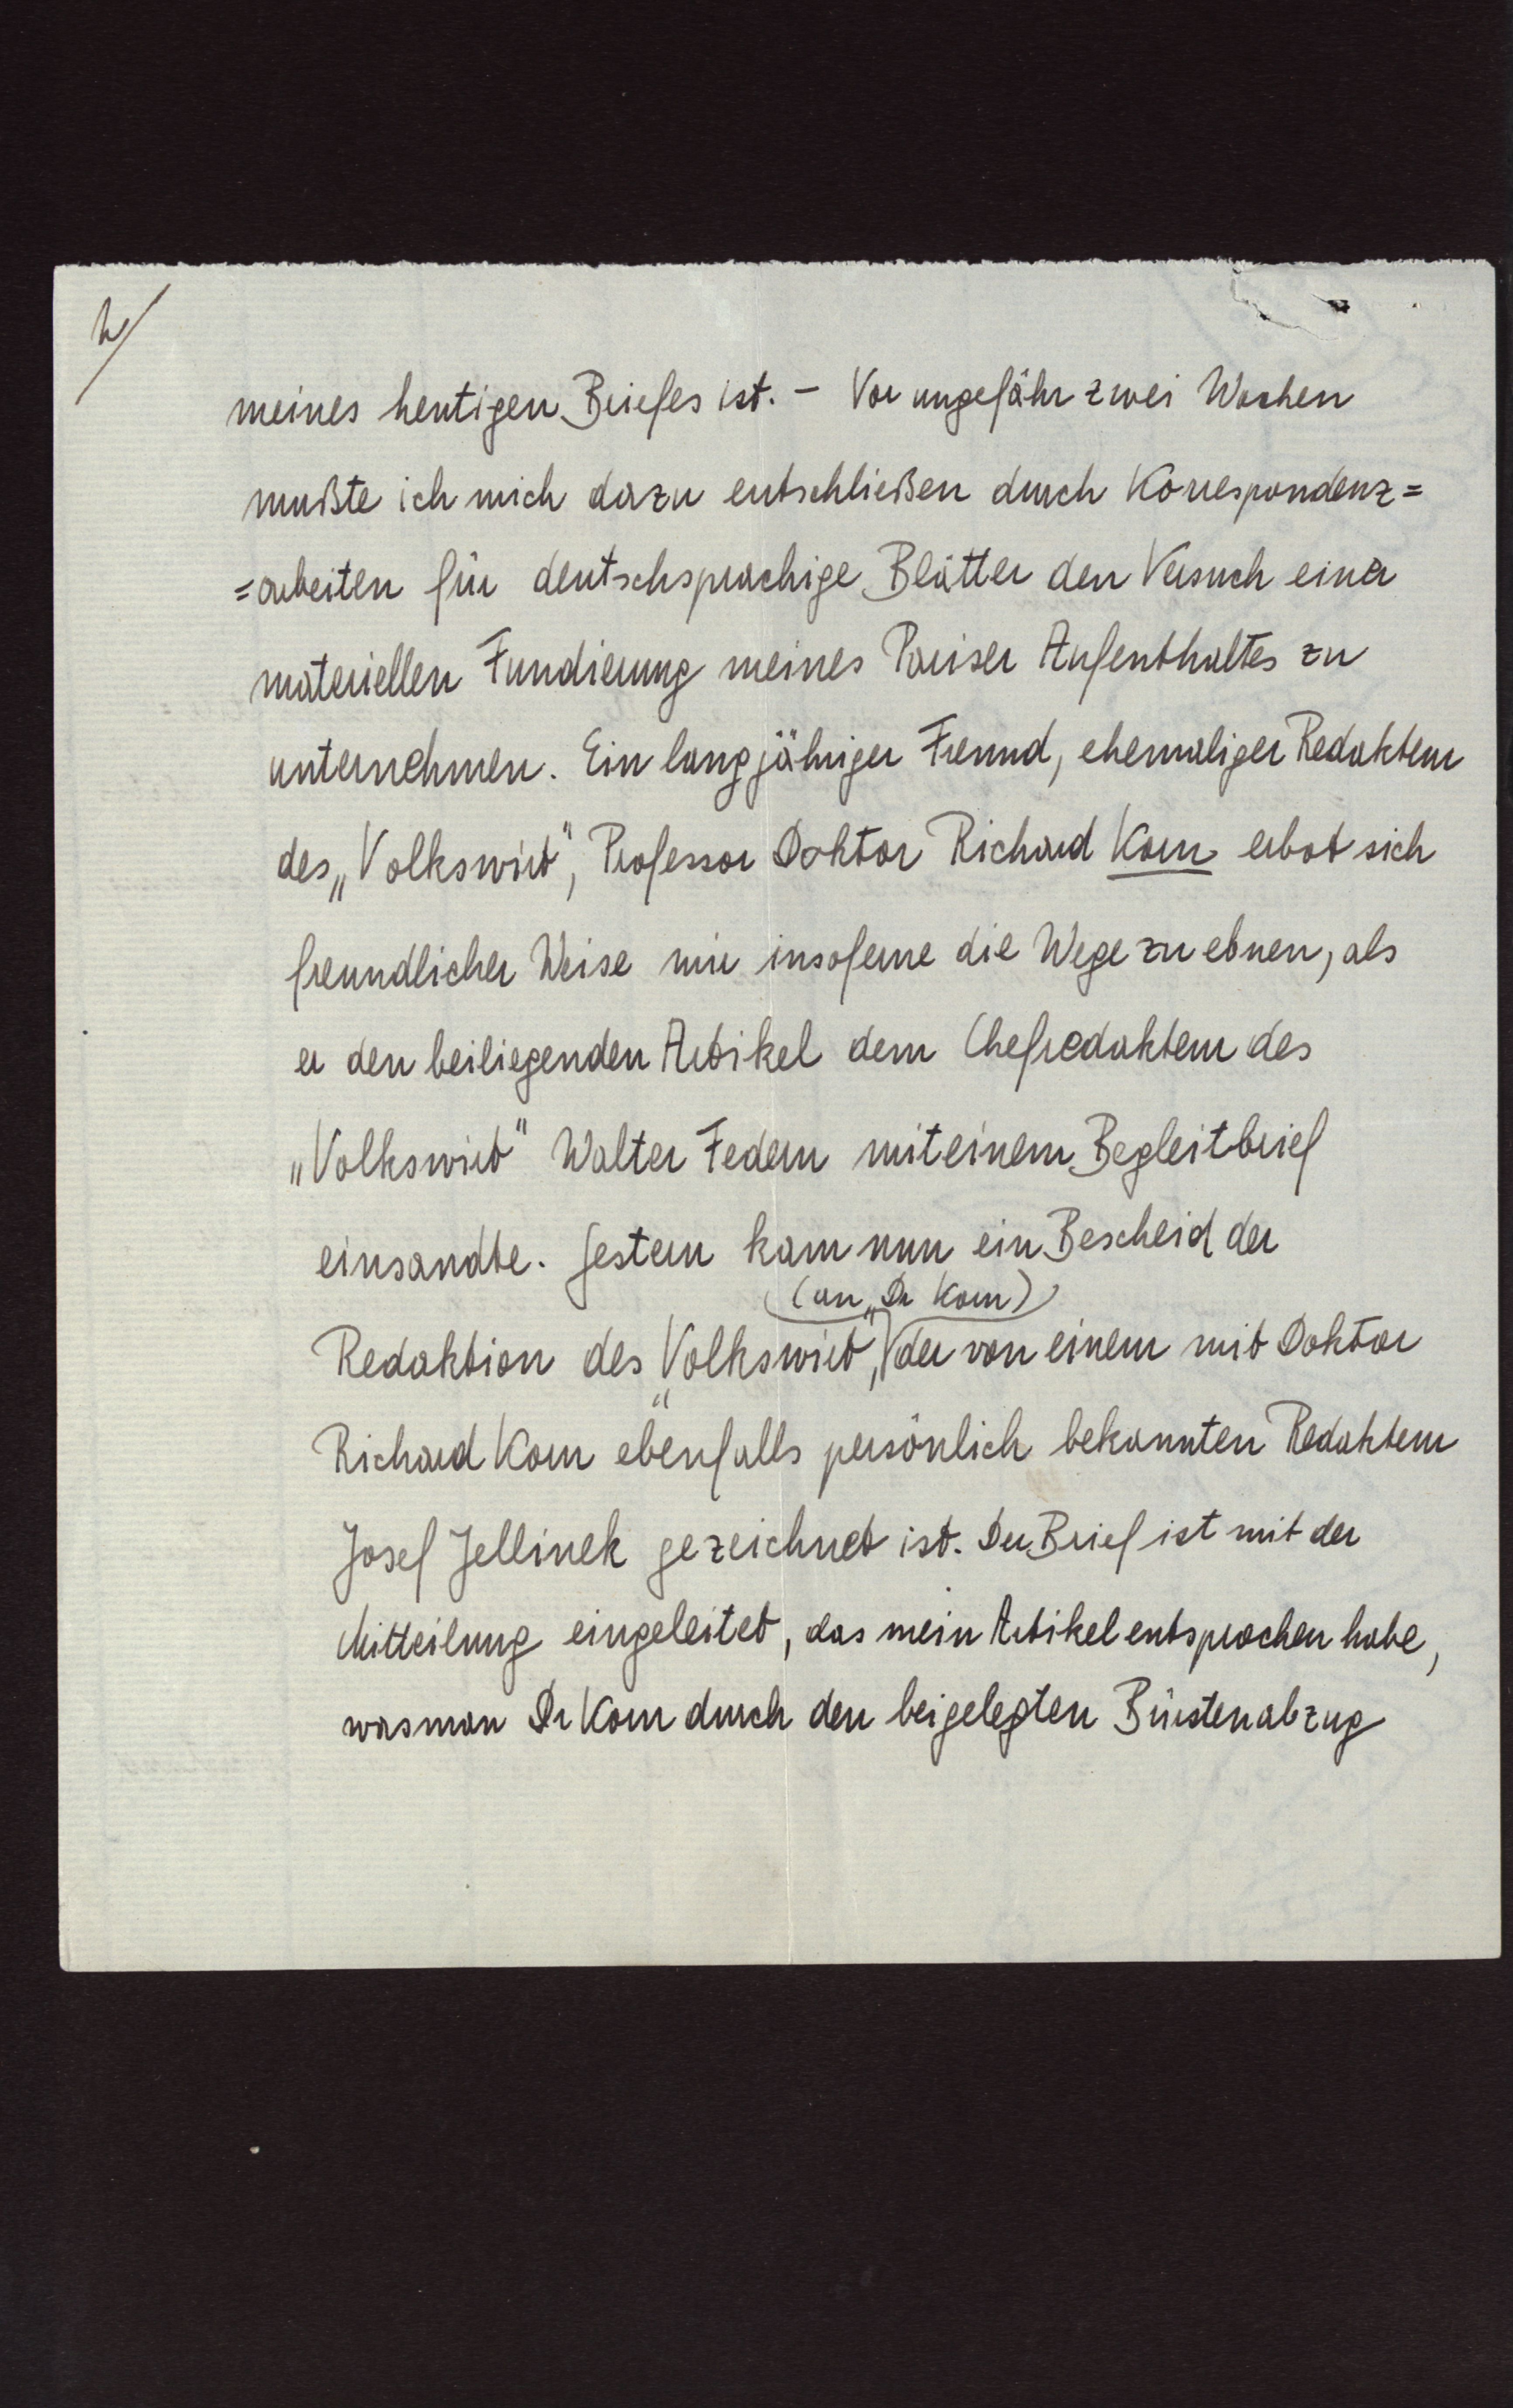 2/
meines heutigen Briefes ist. – Vor ungefähr zwei Wochen
mußte ich mich dazu entschließen durch Korrespondenz=
=arbeiten für deutschsprachige Blätter den Versuch einer
materiellen Fundierung meines Pariser Aufenthaltes zu
unternehmen. Ein langjähriger Freund, ehemaliger Redakteur
des „Volkswirt", Professor Doktor Richard Kern erbot sich
freundlicher Weise mir insoferne die Wege zu ebnen, als
er den beiliegenden Artikel dem Chefredakteur des
„Volkswirt" Walter Federn mit einem Begleitbrief
einsandte. Gestern kam nun ein Bescheid der
(an Dr Kern)
Redaktion des „Volkswirt", der von einem mit Doktor
Richard Kern ebenfalls persönlich bekannten Redakteur
Josef Jellinek gezeichnet ist. Der Brief ist mit der
Mitteilung eingeleitet, das mein Artikel entsprochen habe,
was man Dr Kern durch den beigelegten Bürstenabzug